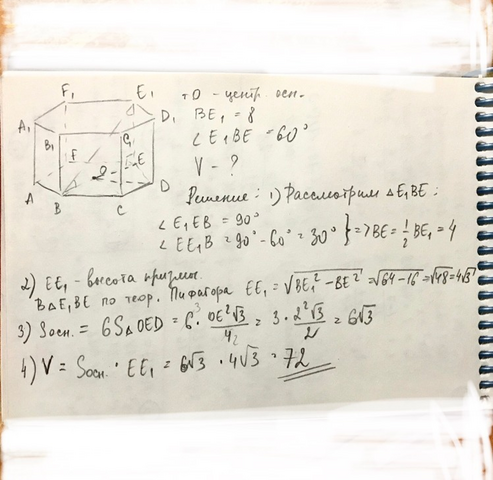 F₁ E₁
A₁ B₁ C₁ D₁
F E
A B C D
O
т.О - центр осн.
BE₁ = 8
∠E₁BE = 60°
V - ?
Решение: 1) Рассмотрим △E₁BE:
∠E₁EB = 90°
∠EE₁B = 90° - 60° = 30° } => BE = ½ BE₁ = 4
2) EE₁ - высота призмы.
В △E₁BE по теор. Пифагора EE₁ = √(BE₁² - BE²) = √(64 - 16) = √48 = 4√3
3) Sосн. = 6S△OED = 6³ · OE²√3/4₂ = 3 · 2²√3/2 = 6√3
4) V = Sосн. · EE₁ = 6√3 · 4√3 = 72